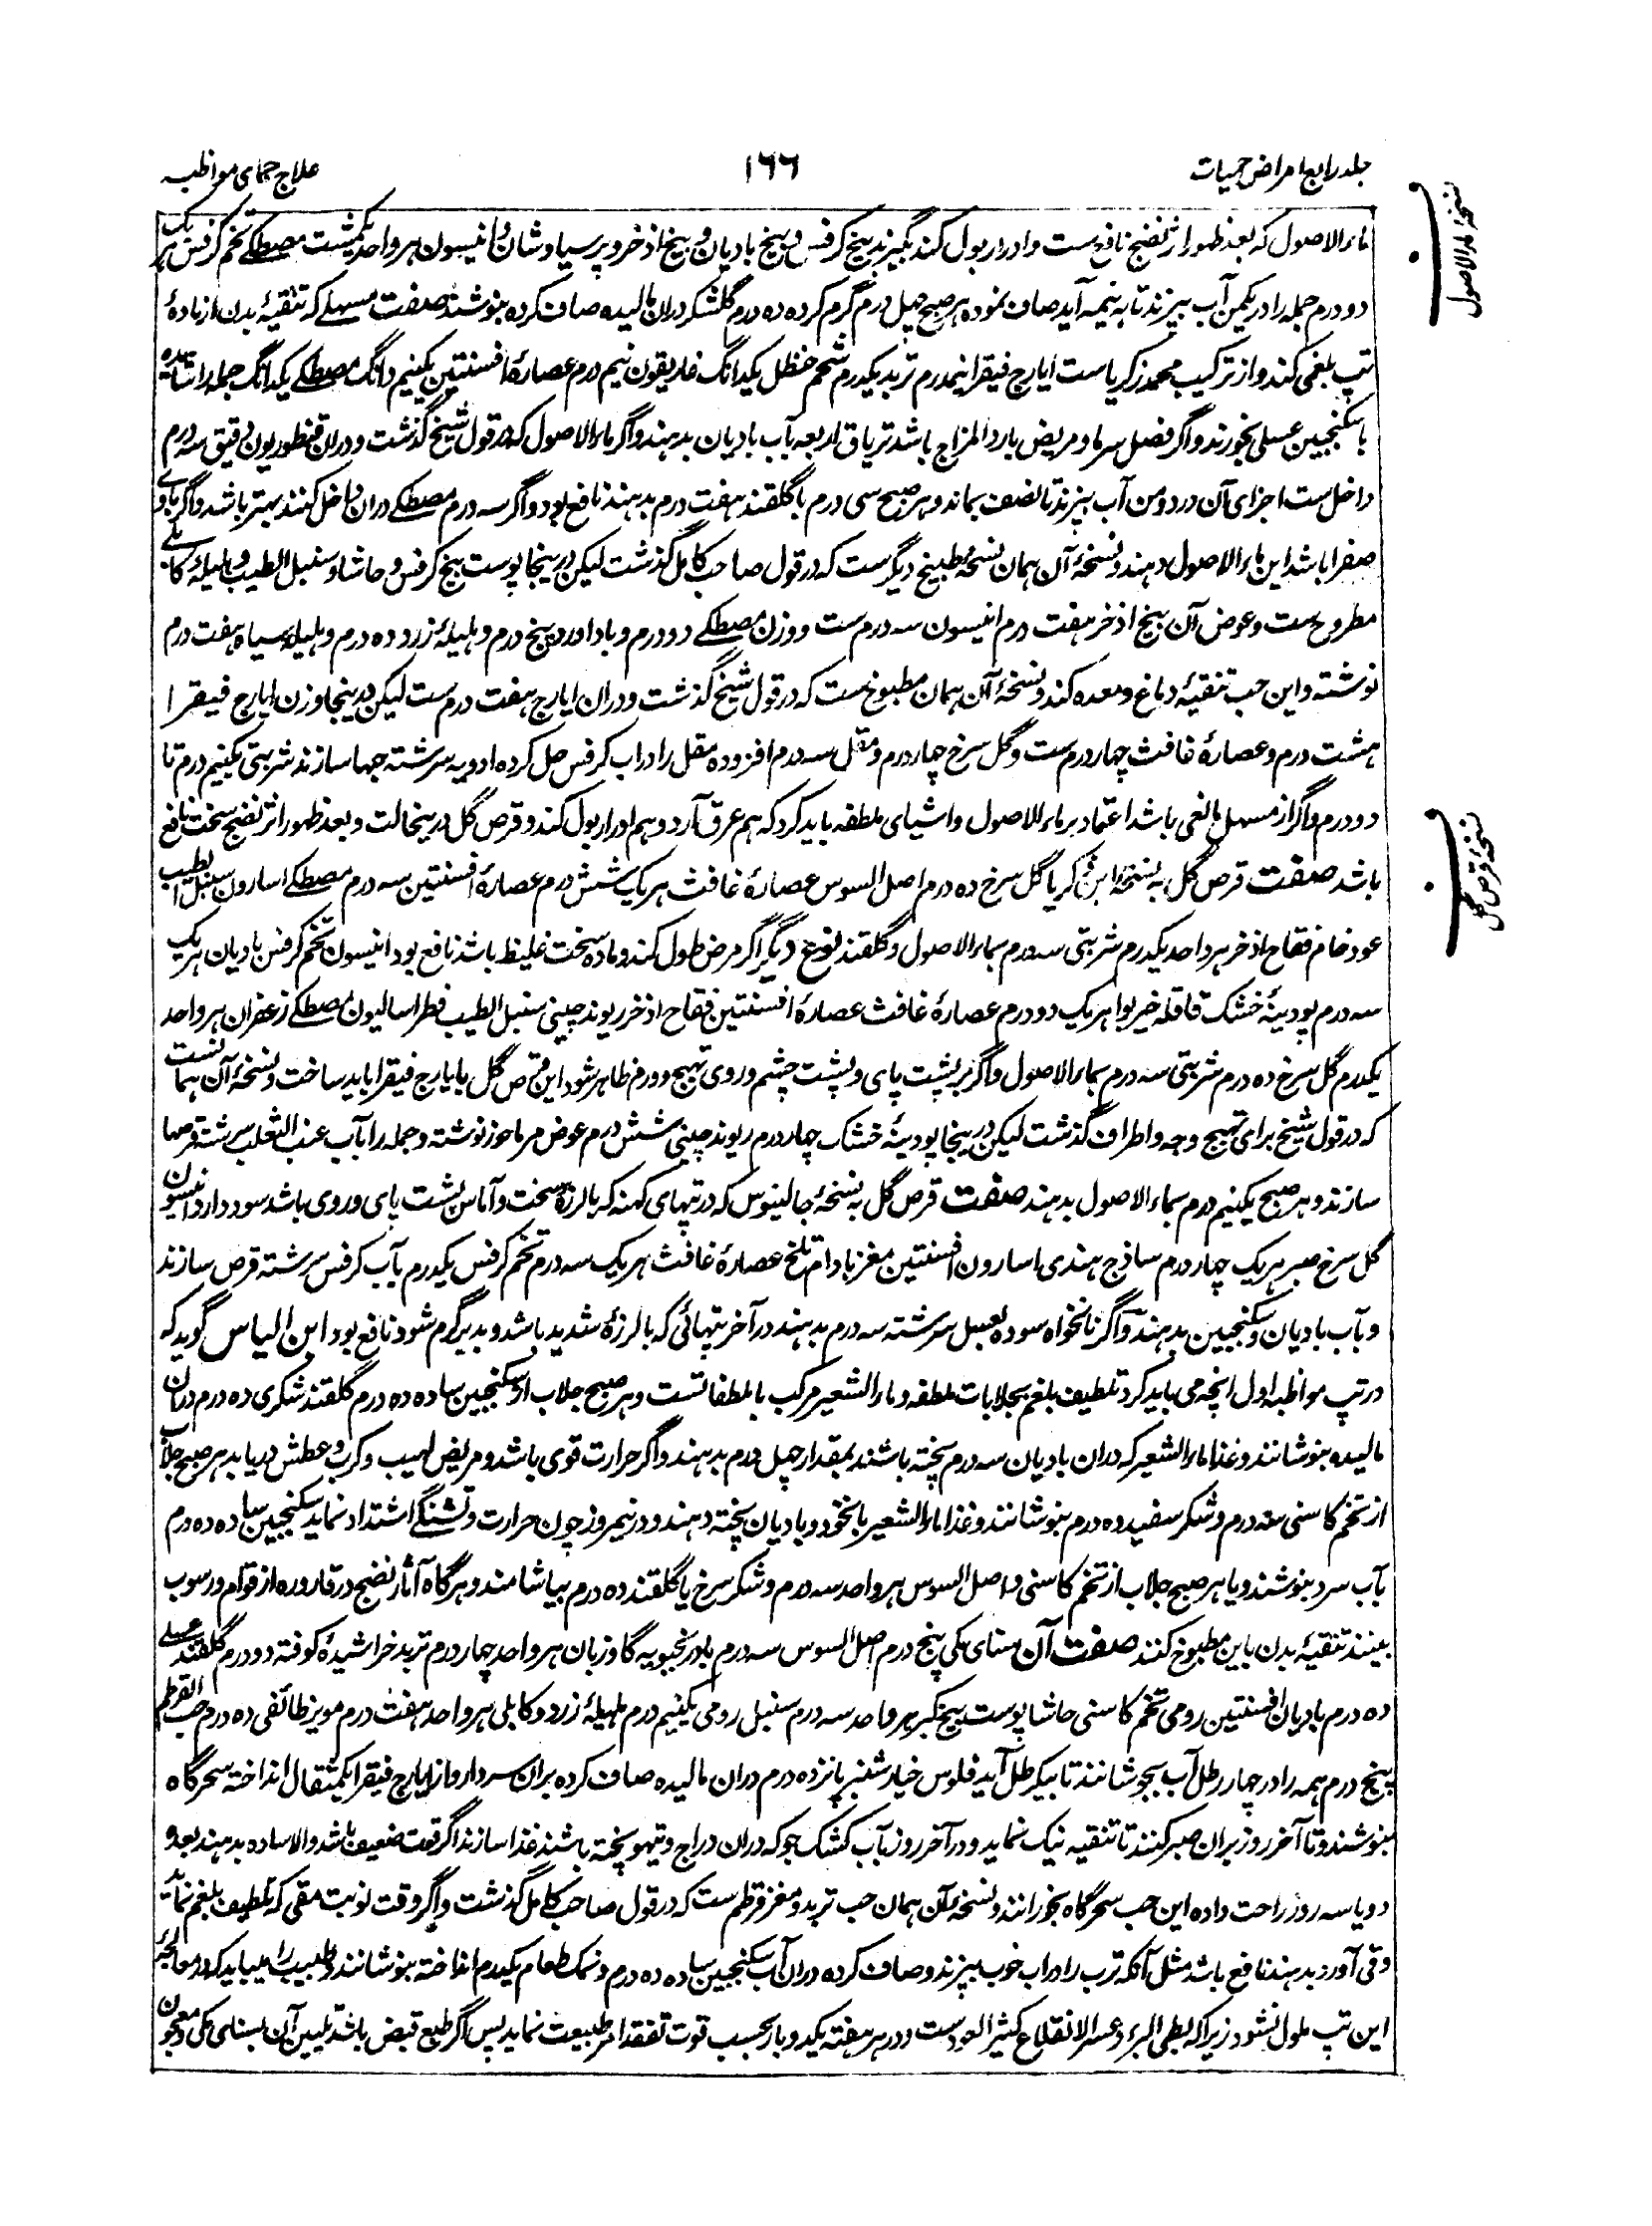 جلد رابع امراض حمیات
۱۶۶
علاج حمای مواظبه
نسخهٔ ماءالاصول
ماءالاصول که بعد ظهور اثر نضج نافع ست و ادرار بول کند بگیرند بیخ کرفس و بیخ بادیان و بیخ اذخر و پرسیاوشان و انیسون هر واحد یکمشت مصطکے تخم کرفس هر یک
دو درم جمله را در یکمن آب بپزند تا به نیمه آید صاف نموده هر صبح چهل درم گرم کرده ده درم گلشکر دران مالیده صاف کرده بنوشند صفت مسهلے که تنقیهٔ بدن از مادهٔ
تپ بلغمی کند و از ترکیب محمد زکریاست ایارج فیقرا نیمدرم تربد یکدرم شحم حنظل یکدانگ غاریقون نیم درم عصارهٔ افسنتین یکنیم دانگ مصطکے یکدانگ جمله را ساییده
با سکنجبین عسلی بخورند و اگر فصل سرما و مریض بارد المزاج باشد تریاق اربعه بآب بادیان بدهند و اگر ماءالاصول که در قول شیخ گذشت و دران قنطوریون دقیق سه درم
داخل ست اجزای آن در دو من آب بپزند تا نصف بماند و هر صبح سی درم با گلقند هفت درم بدهند نافع بود و اگر سه درم مصطکے دران داخل کنند بهتر باشد و اگر با وے
صفرا باشد این ماءالاصول دهند و نسخهٔ آن همان نسخهٔ طبیخ دیگرست که در قول صاحب کامل گذشت لیکن درینجا پوست بیخ کرفس و حاشا و سنبل الطیب و هلیلهٔ کابلے
مطروح ست و عوض آن بیخ اذخر هفت درم انیسون سه درم ست و وزن مصطکے دو درم و باد آورد پنج درم و هلیلهٔ زرد ده درم و هلیله سیاه هفت درم
نوشته و این حب تنقیهٔ دماغ و معده کند و نسخهٔ آن همان مطبوخ ست که در قول شیخ گذشت و دران ایارج هفت درم ست لیکن درینجا وزن ایارج فیقرا
هشت درم و عصارهٔ غافث چهار درم ست و گل سرخ چهار درم و مقل سه درم افزوده مقل را در آب کرفس حل کرده ادویه سرشته حبها سازند شربتی یکنیم درم تا
نسخهٔ قرص گل
دو درم و اگر از مسهل مانعی باشد اعتماد بر ماءالاصول و اشیای ملطفه باید کرد که هم عرق آرد و هم ادرار بول کند و قرص گل درینحالت و بعد ظهور اثر نضج سخت نافع
باشد صفت قرص گل به نسخهٔ ابن زکریا گل سرخ ده درم اصل السوس عصارهٔ غافث هر یک شش درم عصارهٔ افسنتین سه درم مصطکے اسارون سنبل الطیب
عود خام فقاح اذخر هر واحد یکدرم شربتی سه درم بماءالاصول و گلقند نوع دیگر اگر مرض طول کند و ماده سخت غلیظ باشد نافع بود انیسون تخم کرفس بادیان هر یک
سه درم پودینهٔ خشک قاقله خیربوا هر یک دو درم عصارهٔ غافث عصارهٔ افسنتین فقاح اذخر ریوند چینی سنبل الطیب فطراسالیون مصطکے زعفران هر واحد
یکدرم گل سرخ ده درم شربتی سه درم بماءالاصول و اگر بر پشت پای و پشت چشم و روی تهبج و ورم ظاهر شود این قرص گل با یارج فیقرا باید ساخت و نسخهٔ آن همانست
که در قول شیخ برای تهبج وجه و اطراف گذشت لیکن درینجا پودینهٔ خشک چهار درم ریوند چینی شش درم عوض مرماحوز نوشته و جمله را بآب عنب الثعلب سرشته قرصها
سازند و هر صبح یکنیم درم بماءالاصول بدهند صفت قرص گل به نسخهٔ جالینوس که در تپهای کهنه که با لرزهٔ سخت و آماس پشت پای و روی باشد سود دارد انیسون
گل سرخ صبر هر یک چهار درم ساذج هندی اسارون افسنتین مغز بادام تلخ عصارهٔ غافث هر یک سه درم تخم کرفس یکدرم بآب کرفس سرشته قرص سازند
و بآب بادیان و سکنجبین بدهند و اگر نانخواه سوده بعسل سرشته سه درم بدهند در آخر تپهائی که با لرزهٔ شدید باشد و بدیر گرم شود نافع بود ابن الیاس گوید که
در تپ مواظبه اول آنچه می باید کرد تلطیف بلغم بجلابات ملطفه و ماءالشعیر مرکب با ملطفاتست و هر صبح جلاب از سکنجبین ساده ده درم گلقند شکری ده درم دران
مالیده بنوشانند و غذا ماءالشعیر که دران بادیان سه درم پخته باشند بمقدار چهل درم بدهند و اگر حرارت قوی باشد و مریض لهیب و کرب و عطش دریابد هر صبح جلاب
از تخم کاسنی سه درم و شکر سفید ده درم بنوشانند و غذا ماءالشعیر با نخود و بادیان پخته دهند و در نیمروز چون حرارت و تشنگے اشتداد نماید سکنجبین ساده ده درم
بآب سرد بنوشند و یا هر صبح جلاب از تخم کاسنی و اصل السوس هر واحد سه درم و شکر سرخ یا گلقند ده درم بیاشامند و هرگاه آثار نضج در قاروره از قوام و رسوب
ببینند تنقیهٔ بدن باین مطبوخ کنند صفت آن سنای مکی پنج درم اصل السوس سه درم بادرنجبویه گاوزبان هر واحد چهار درم تربد خراشیدهٔ کوفته دو درم گلقند عسلے
ده درم بادیان افسنتین رومی تخم کاسنی حاشا پوست بیخ کبر هر واحد سه درم سنبل رومی یکنیم درم هلیلهٔ زرد و کابلی هر واحد هفت درم مویز طائفی ده درم حب القرطم
پنج درم همه را در چهار رطل آب بجوشانند تا بیکرطل آید فلوس خیارشنبر پانزده درم دران مالیده صاف کرده بران سر دارو از ایارج فیقرا یکمثقال انداخته سحرگاه
بنوشند و تا آخر روز بران صبر کنند تا تنقیه نیک نماید و در آخر روز بآب کشک جو که دران دراج و تیهو پخته باشند غذا سازند اگر قوت ضعیف باشد والا ساده بدهند بعده
دو یا سه روز راحت داده این حب سحرگاه بخورانند و نسخهٔ آن همان حب تربد و مغز قرطم ست که در قول صاحب کامل گذشت و اگر وقت نوبت مقی که تلطیف بلغم نماید
و قی آورد بدهند نافع باشد مثل آنکه ترب را در آب خوب بپزند و صاف کرده دران آب سکنجبین ساده ده درم و نمک طعام یکدرم انداخته بنوشانند و طبیب را میباید که در معالجهٔ
این تپ ملول نشود زیرا که بطی البرء و عسر الانقلاع کثیر العودست و در هر هفته یکدو بار بحسب قوت تفقد امر طبیعت نماید پس اگر طبع قبض باشد تلیین آن بسنای مکی و معجون